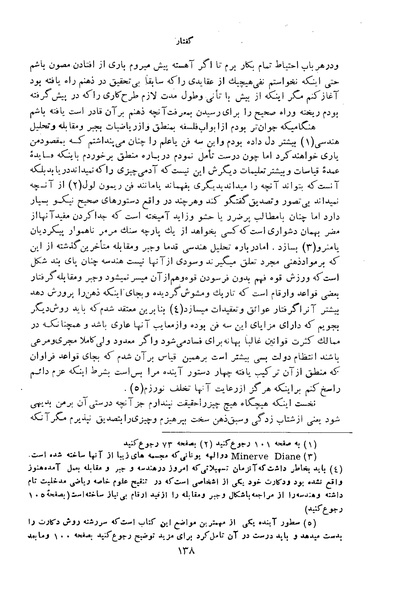 گفتار
ودرهرباب احتیاط تمام بکار برم تا اگر آهسته پیش میروم باری از افتادن مصون باشم
حتی اینکه نخواستم نفی هیچیک از عقایدی راکه سابقاً بی تحقیق در ذهنم راه یافته بود
آغازکنم مگر اینکه از پیش با تأنی وطول مدت لازم طرح کاری راکه در پیش گرفته
بودم ریخته وراه صحیح را برای رسیدن بمعرفت آنچه ذهنم برآن قادر است یافته باشم
هنگامیکه جوان تر بودم ازابواب فلسفه بمنطق وازریاضیات بجبر ومقابله وتحلیل
هندسی (۱) بیشتر دل داده بودم واین سه فن یاعلم را چنان می پنداشتم که بمقصودمن
یاری خواهندکرد اما چون درست تأمل نمودم درباره منطق برخوردم باینکه فایدهٔ
عمدهٔ قیاسات وبیشتر تعلیمات دیگرش این نیست که آدمی چیزی راکه نمیداند دریابد بلکه
آنست که بتواند آنچه را میداند بدیگری بفهماند یا مانند فن ریمون لول (۲) از آنچه
نمیداند بی تصور وتصدیق گفتگو کند وهرچند در واقع دستورهای صحیح نیکو بسیار
دارد اما چنان بامطالب پرضرر یا حشو وزاید آمیخته است که جداکردن مفید آنها از
مضر بهمان دشواری است که کسی بخواهد از یک پارچه سنگ مرمر ناهموار پیکر دیان
یامنرو (۳) بسازد . امادرباره تحلیل هندسی قدما وجبر ومقابله متأخرین گذشته از این
که بر موادذهنی مجرد تعلق میگیرند وسودی از آنها نیست هندسه چنان پای بند شکل
است که ورزش قوه فهم بدون فرسودن قوه وهم از آن میسر نمیشود وجبر ومقابله گرفتار
بعضی قواعد وارقام است که تاریک ومشوش گردیده وبجای اینکه ذهن را پرورش دهد
بیشتر آنرا گرفتار عوائق و تعقیدات میسازد (۴) بنابرین معتقد شدم که باید روش دیگر
بجویم که دارای مزایای این سه فن بوده وازمعایب آنها عاری باشد و همچنانکه در
ممالک کثرت قوانین غالباً بهانه برای فساد می شود واگر معدود ولی کاملا مجری ومرعی
باشند انتظام دولت بسی بیشتر است برهمین قیاس برآن شدم که بجای قواعد فراوان
که منطق از آن ترکیب یافته چهار دستور آینده مرا بس است بشرط اینکه عزم دائم
راسخ کنم براینکه هرگز از رعایت آنها تخلف نورزم (۵) .
نخست اینکه هیچگاه هیچ چیز را حقیقت نپندارم جز آنچه درستی آن برمن بدیهی
شود یعنی ازشتاب زدگی وسبق ذهن سخت بپرهیزم وچیزی را بتصدیق نپذیرم مگر آنکه
(۱) به صفحه ۱۰۱ رجوع کنید (۲) بصفحه ۷۳ رجوع کنید
(۳) Minerve Diane دو الهه یونانی که مجسمه های زیبا از آنها ساخته شده است.
(۴) باید بخاطر داشت که آن زمان تسهیلاتی که امروز در هندسه و جبر و مقابله بعمل آمده هنوز
واقع نشده بود ودکارت خود یکی از اشخاصی است که در تنقیح علوم خاصه ریاضی مدخلیت تام
داشته وهندسه را از مراجعه باشکال وجبر ومقابله را ازقید ارقام بی نیاز ساخته است (بصفحه ۱۰۵
رجوع کنید)
(۵) سطور آینده یکی از مهمترین مواضع این کتاب است که سررشته روش دکارت را
بدست میدهد و باید درست در آن تامل کرد برای مزید توضیح رجوع کنید بصفحه ۱۰۰ ومابعد
۱۳۸